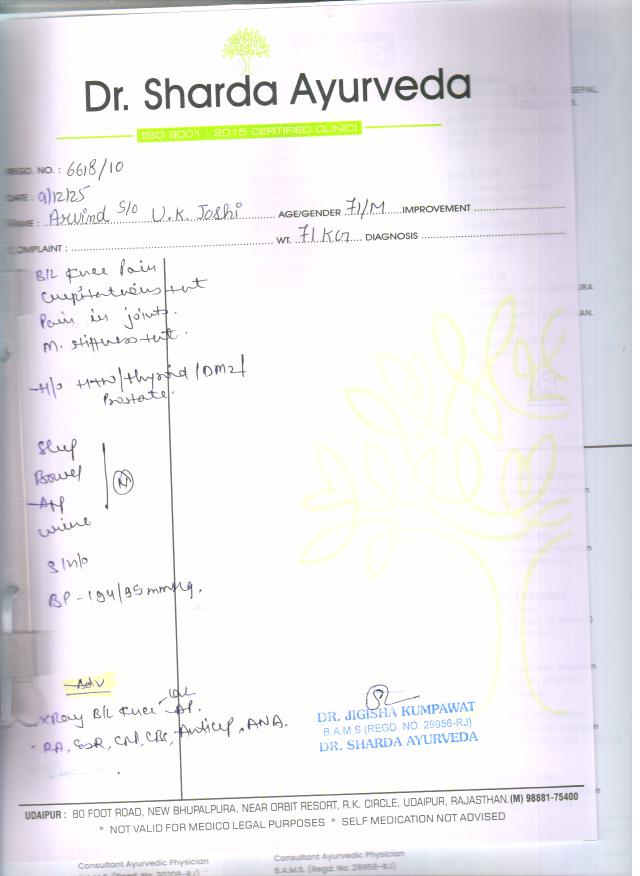 Dr. Sharda Ayurveda
(ISO 9001 : 2015 CERTIFIED CLINIC)
REGD. NO. : 6618/10
DATE : 9/12/25
NAME : Arvind S/o U.K. Joshi AGE/GENDER 71/M IMPROVEMENT
COMPLAINT : WT. 71 KG DIAGNOSIS
B/L Knee Pain
Crepitations +nt
Pain in joints.
M. stiffness +nt.
H/o HTN/thyroid/DM2/
Prostate.
Sleep
Bowel
App
urine
N
S/H/o
BP - 194/95 mmHg.
Adv
XRay B/L Knee AP.
Lat
RA, ESR, CRP, CBC, Anticcp, ANA.
DR. JIGISHA KUMPAWAT
B.A.M.S (REGD. NO. 29956-RJ)
DR. SHARDA AYURVEDA
UDAIPUR : 80 FOOT ROAD, NEW BHUPALPURA, NEAR ORBIT RESORT, R.K. CIRCLE, UDAIPUR, RAJASTHAN.(M) 98881-75400
° NOT VALID FOR MEDICO LEGAL PURPOSES ° SELF MEDICATION NOT ADVISED
Consultant Ayurvedic Physician Consultant Ayurvedic Physician
B.A.M.S. (Regd. No. 29956-RJ)